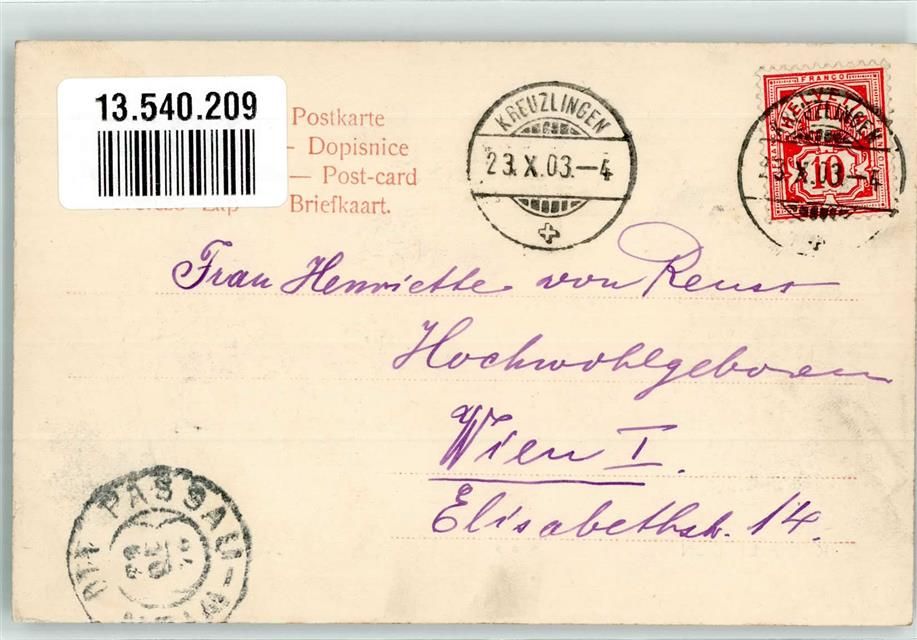 13.540.209
Postkarte
– Dopisnice
— Post-card
Briefkaart.
KREUZLINGEN
23.X.03.–4
FRANCO
HELVETIA
10
KREUZLINGEN
23.X.03–4
Frau Henriette von Reuss
Hochwohlgeboren
Wien I.
Elisabethstr. 14.
PASSAU–